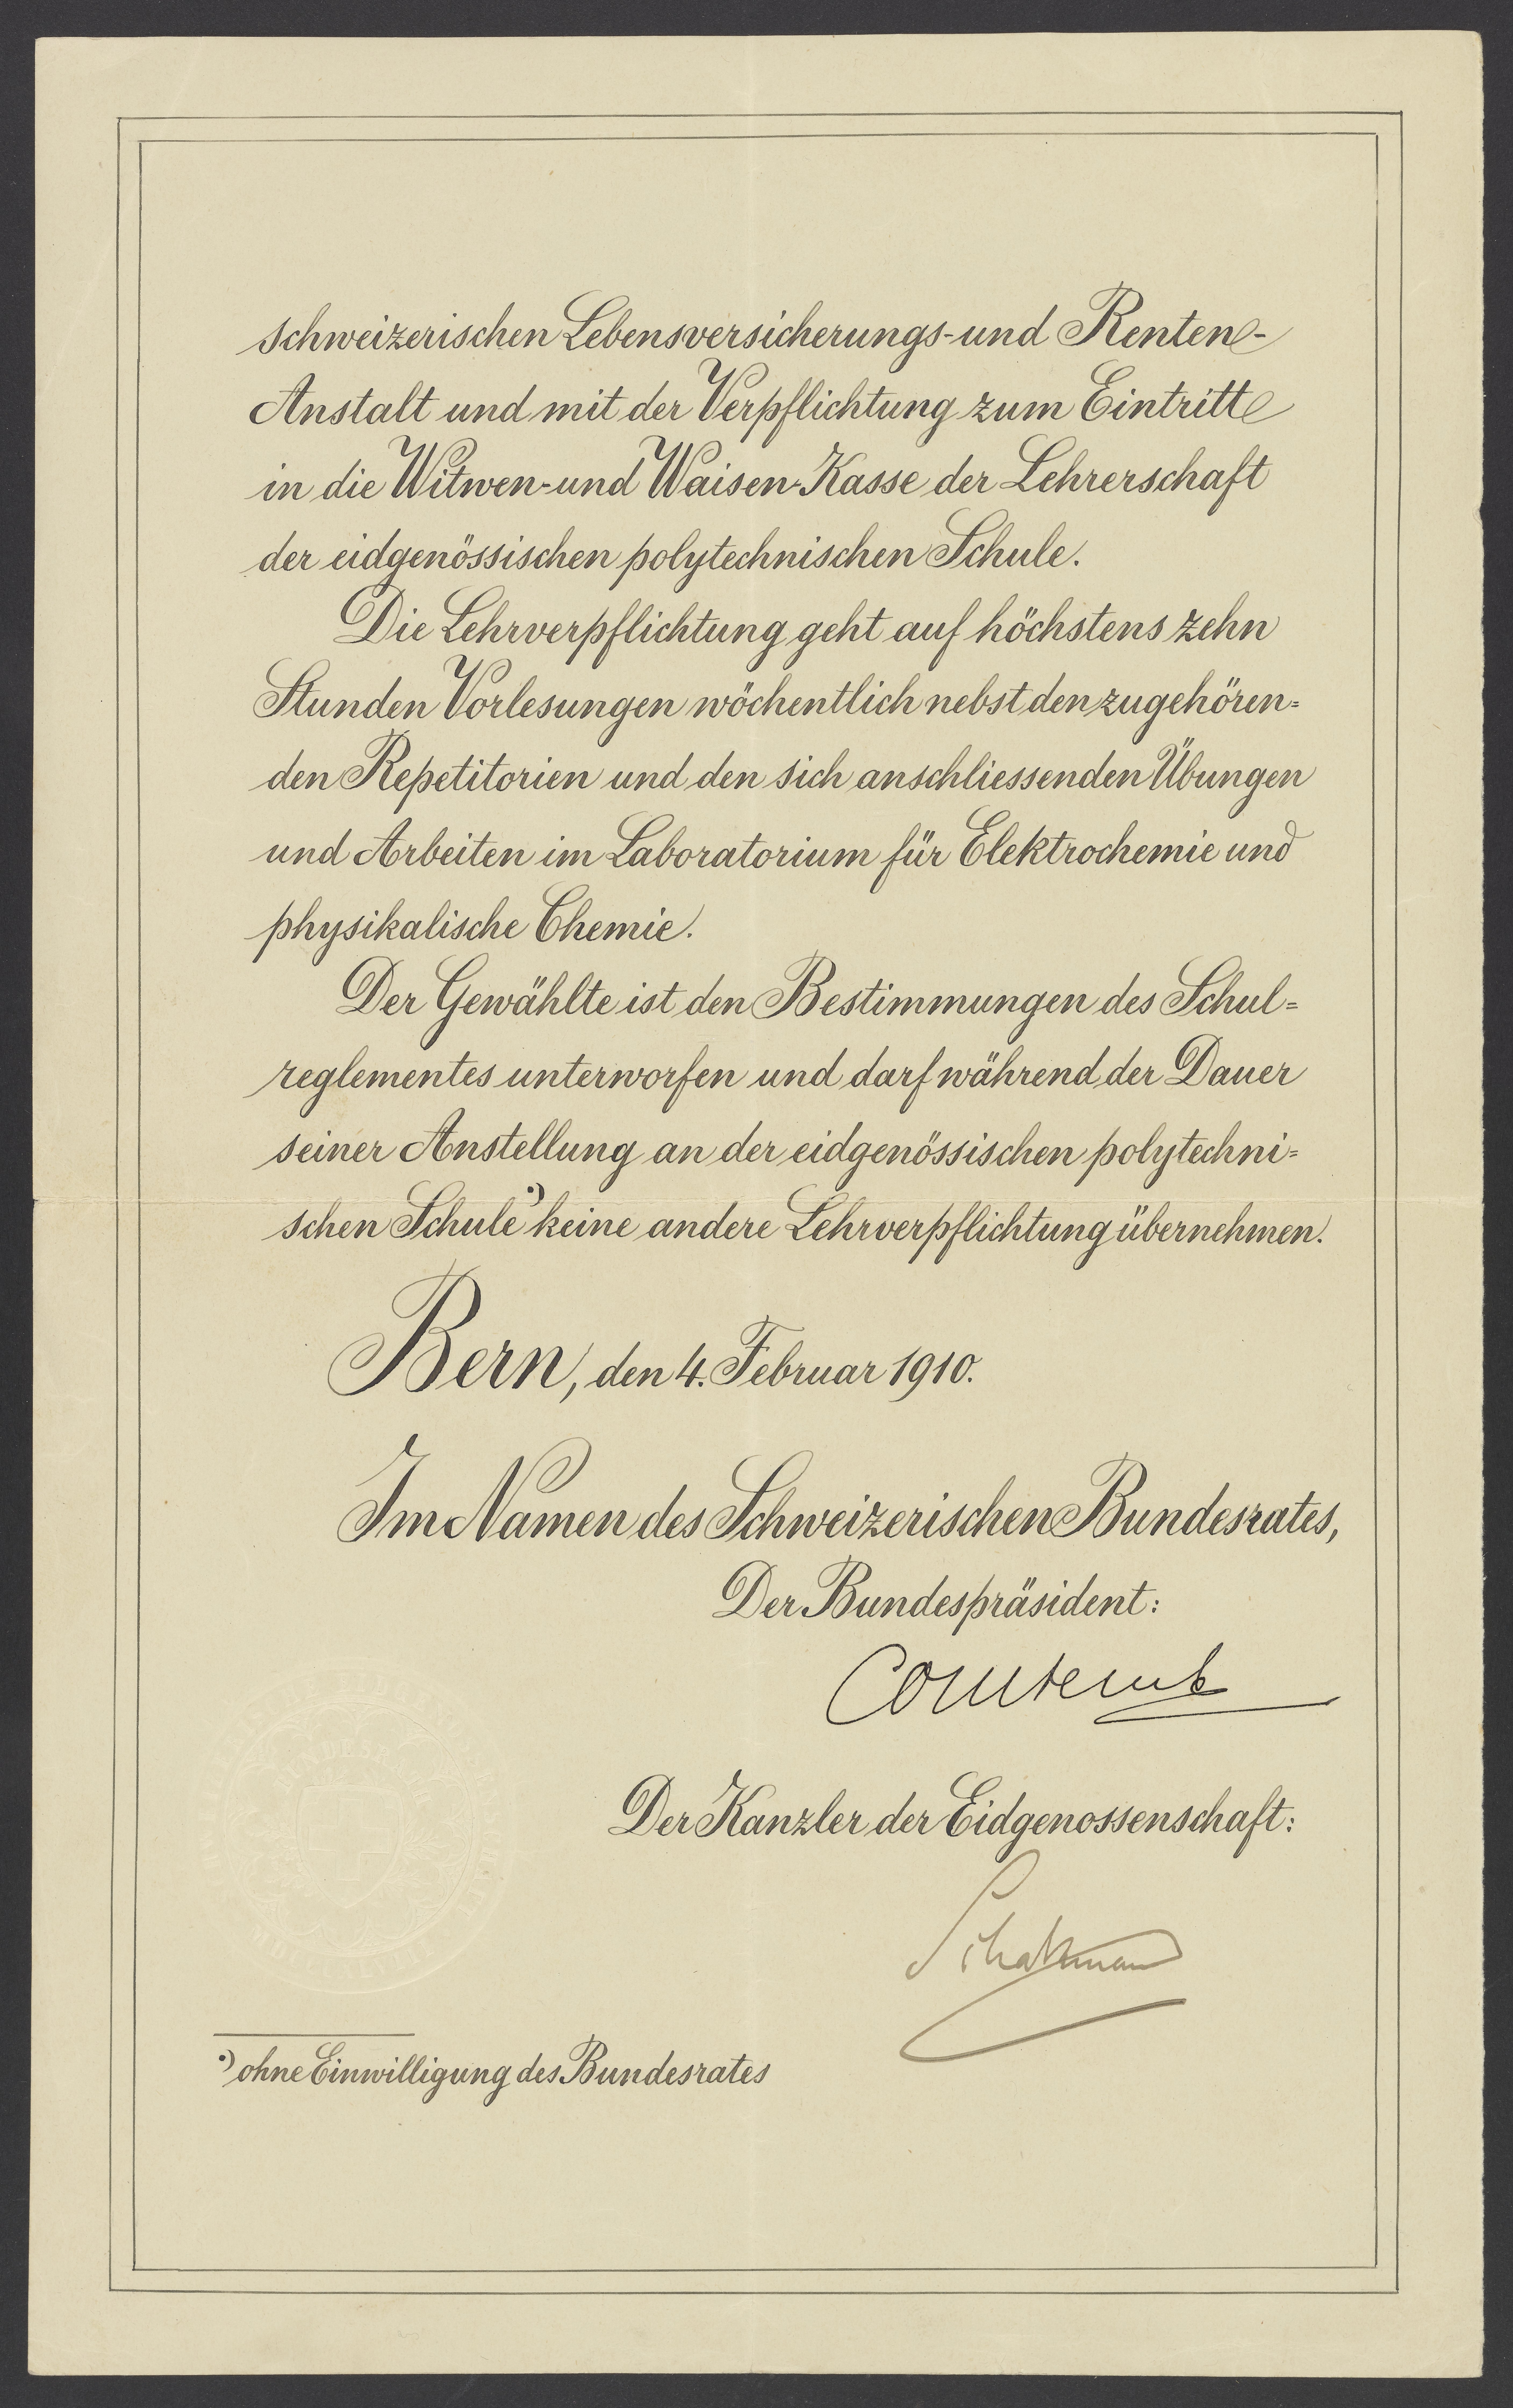 schweizerischen Lebensversicherungs- und Renten-
Anstalt und mit der Verpflichtung zum Eintritte
in die Witwen- und Waisen-Kasse der Lehrerschaft
der eidgenössischen polytechnischen Schule.
Die Lehrverpflichtung geht auf höchstens zehn
Stunden Vorlesungen wöchentlich nebst den zugehören=
den Repetitorien und den sich anschliessenden Übungen
und Arbeiten im Laboratorium für Elektrochemie und
physikalische Chemie.
Der Gewählte ist den Bestimmungen des Schul=
reglementes unterworfen und darf während der Dauer
seiner Anstellung an der eidgenössischen polytechni=
schen Schule*) keine andere Lehrverpflichtung übernehmen.
Bern, den 4. Februar 1910.
Im Namen des Schweizerischen Bundesrates,
Der Bundespräsident:
Comtesse
Der Kanzler der Eidgenossenschaft:
Schatzmann
*) ohne Einwilligung des Bundesrates